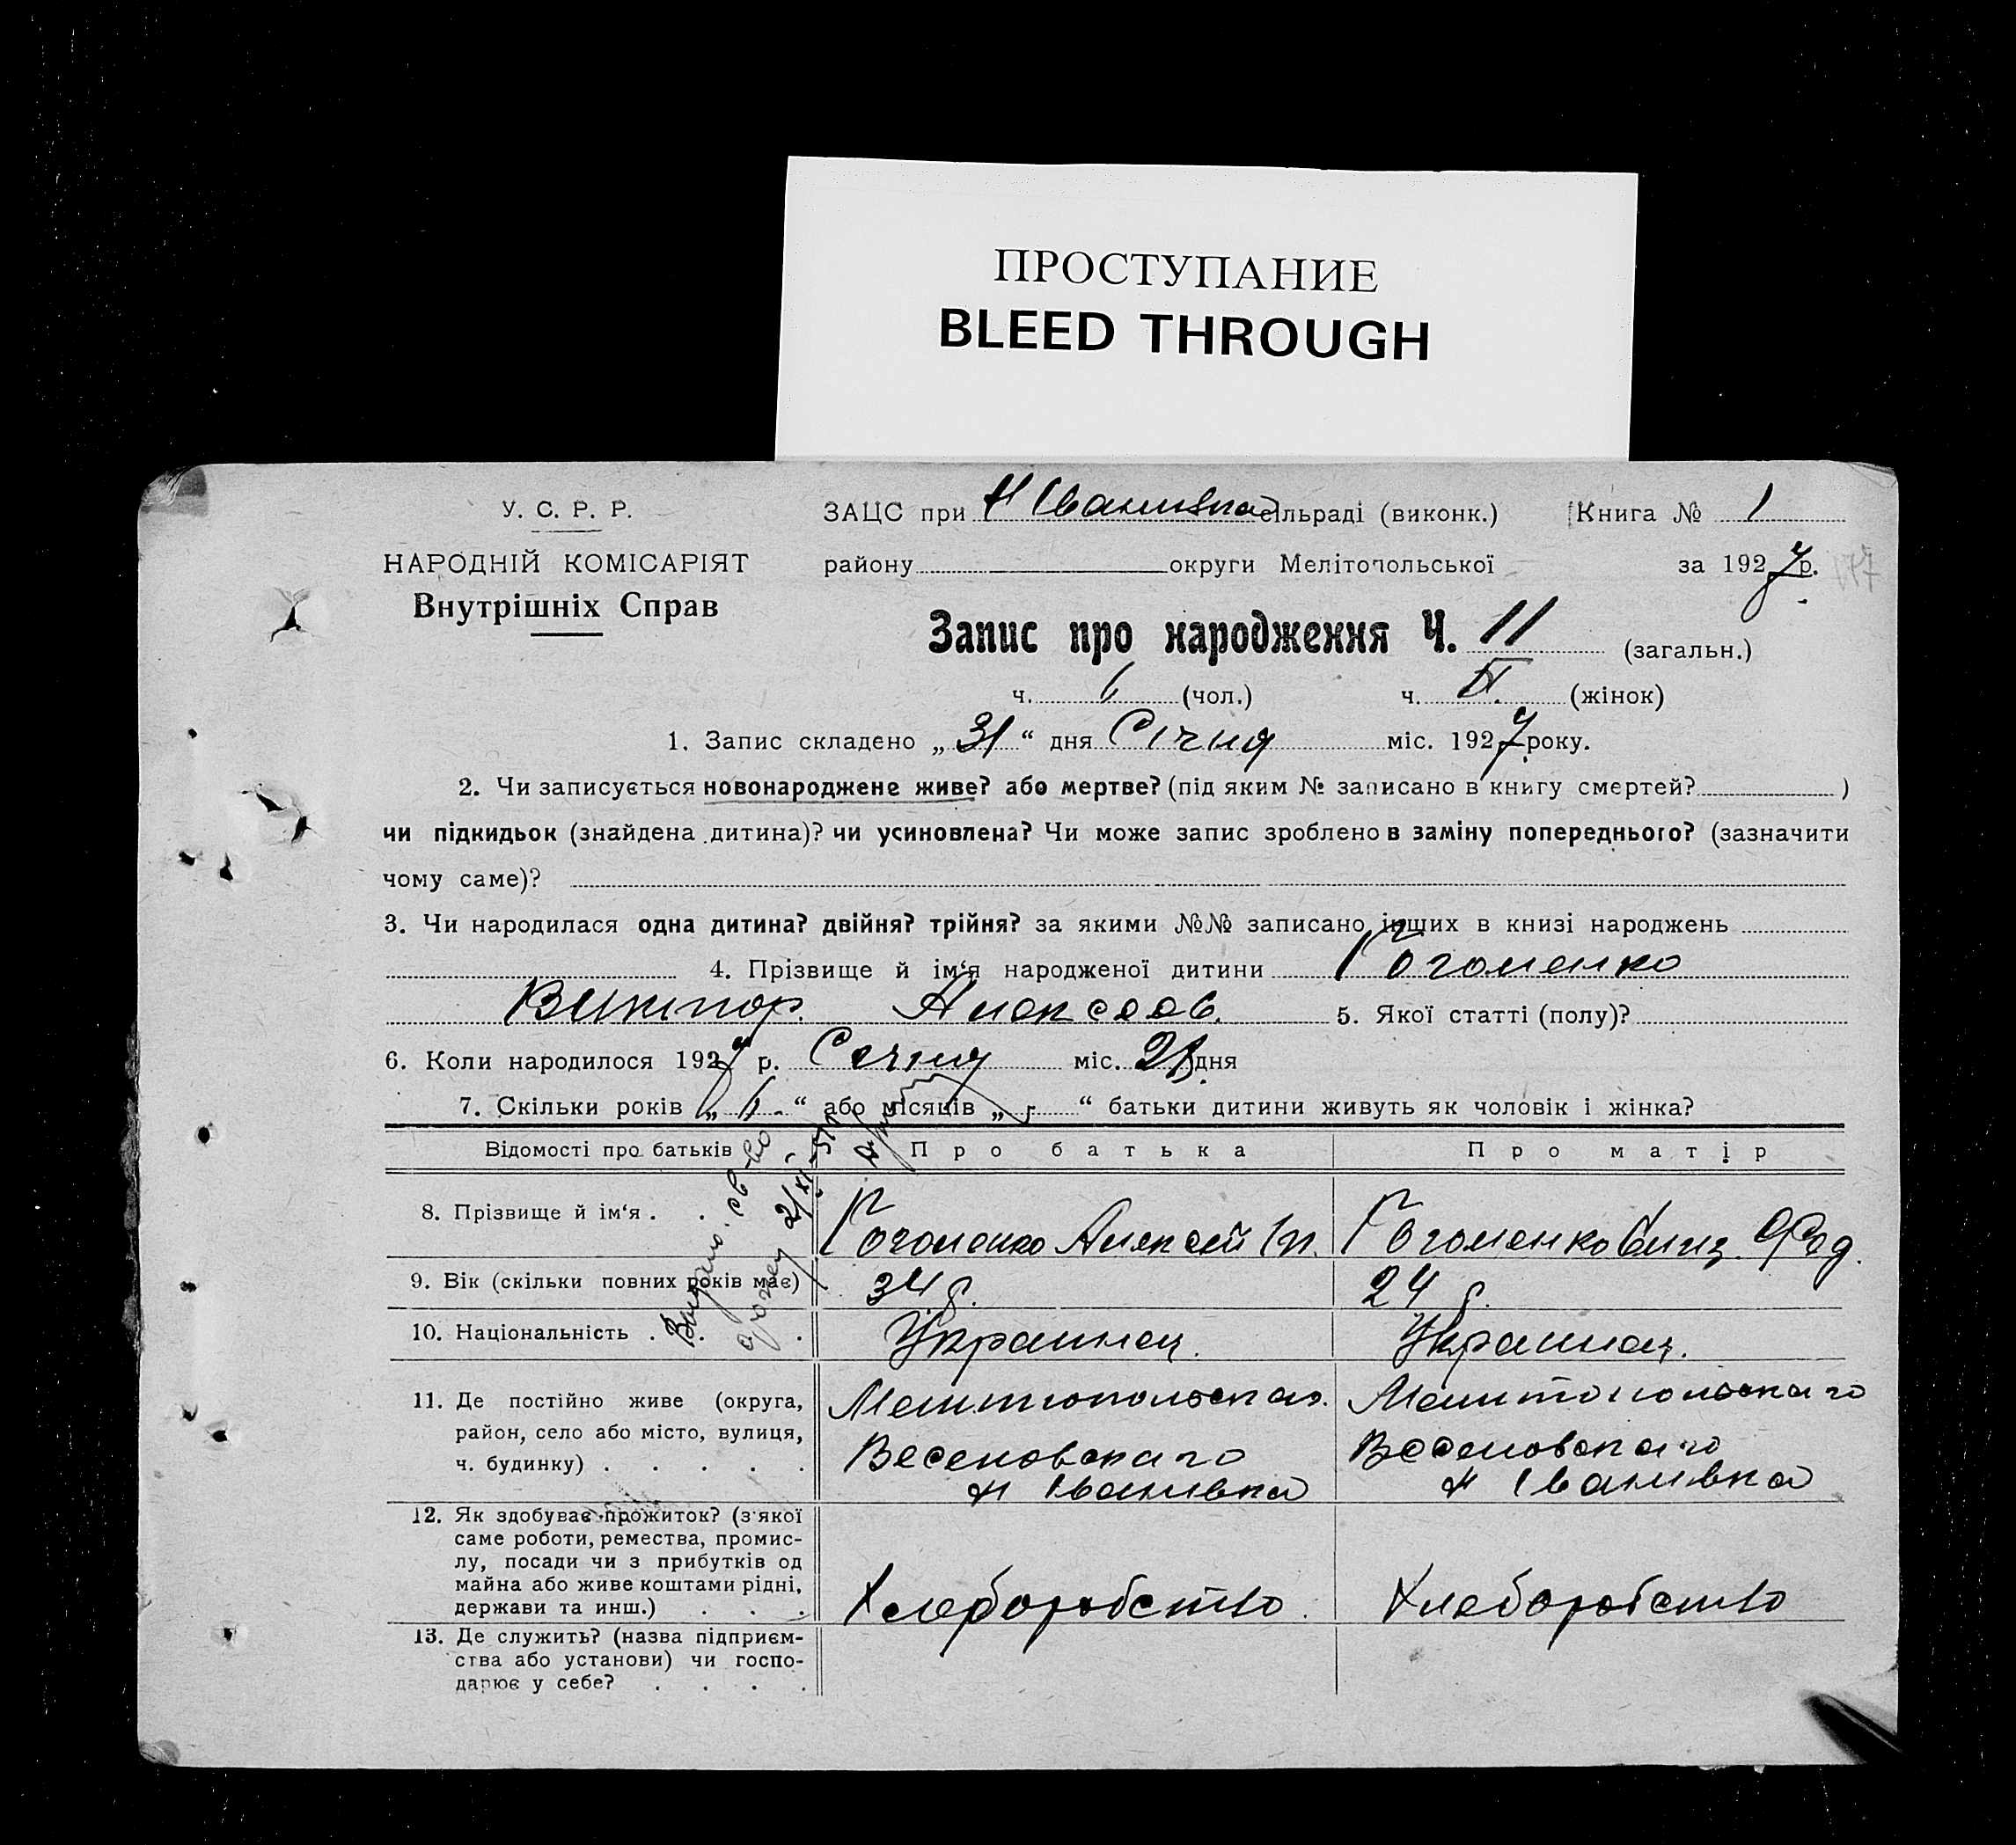 ПРОСТУПАНИЕ
BLEED THROUGH
У. С. Р. Р.
НАРОДНІЙ КОМІСАРІЯТ
Внутрішніх Справ
ЗАЦС при Н Іванивка сільраді (виконк.) Книга № 1
району округи Мелітопольської за 1927 р.
Запис про народження Ч. 11 (загальн.)
ч. 6 (чол.) ч. (жінок)
1. Запис складено „31“ дня Січня міс. 1927 року.
2. Чи записується новонароджене живе? або мертве? (під яким № записано в книгу смертей? )
чи підкидьок (знайдена дитина)? чи усиновлена? Чи може запис зроблено в заміну попереднього? (зазначити
чому саме)?
3. Чи народилася одна дитина? двійня? трійня? за якими №№ записано інших в книзі народжень
4. Прізвище й ім‘я народженої дитини Гоголенко
Виктор Алексеев. 5. Якої статті (полу)?
6. Коли народилося 1927 р. Сечня міс. дня
7. Скільки років „6.“ або місяців „ “ батьки дитини живуть як чоловік і жінка?
Відомості про батьків Про батька Про матір
8. Прізвище й ім‘я . . Гоголенко Алексей Гоголенко
9. Вік (скільки повних років має) 34 г. 24 г.
10. Національність . . . Украинец. Украинец.
11. Де постійно живе (округа,
район, село або місто, вулиця,
ч. будинку) . . . . .
Мелитопольскаг. Мелитопольскаго
Веселовскаго Веселовскаго
Н Іванивка Н Іванивка
12. Як здобуває прожиток? (з якої
саме роботи, ремества, промис-
лу, посади чи з прибутків од
майна або живе коштами рідні,
держави та инш.) . . .
Хлеборобство Хлеборобство
13. Де служить? (назва підприєм-
ства або установи) чи госпо-
дарює у себе? . . . .